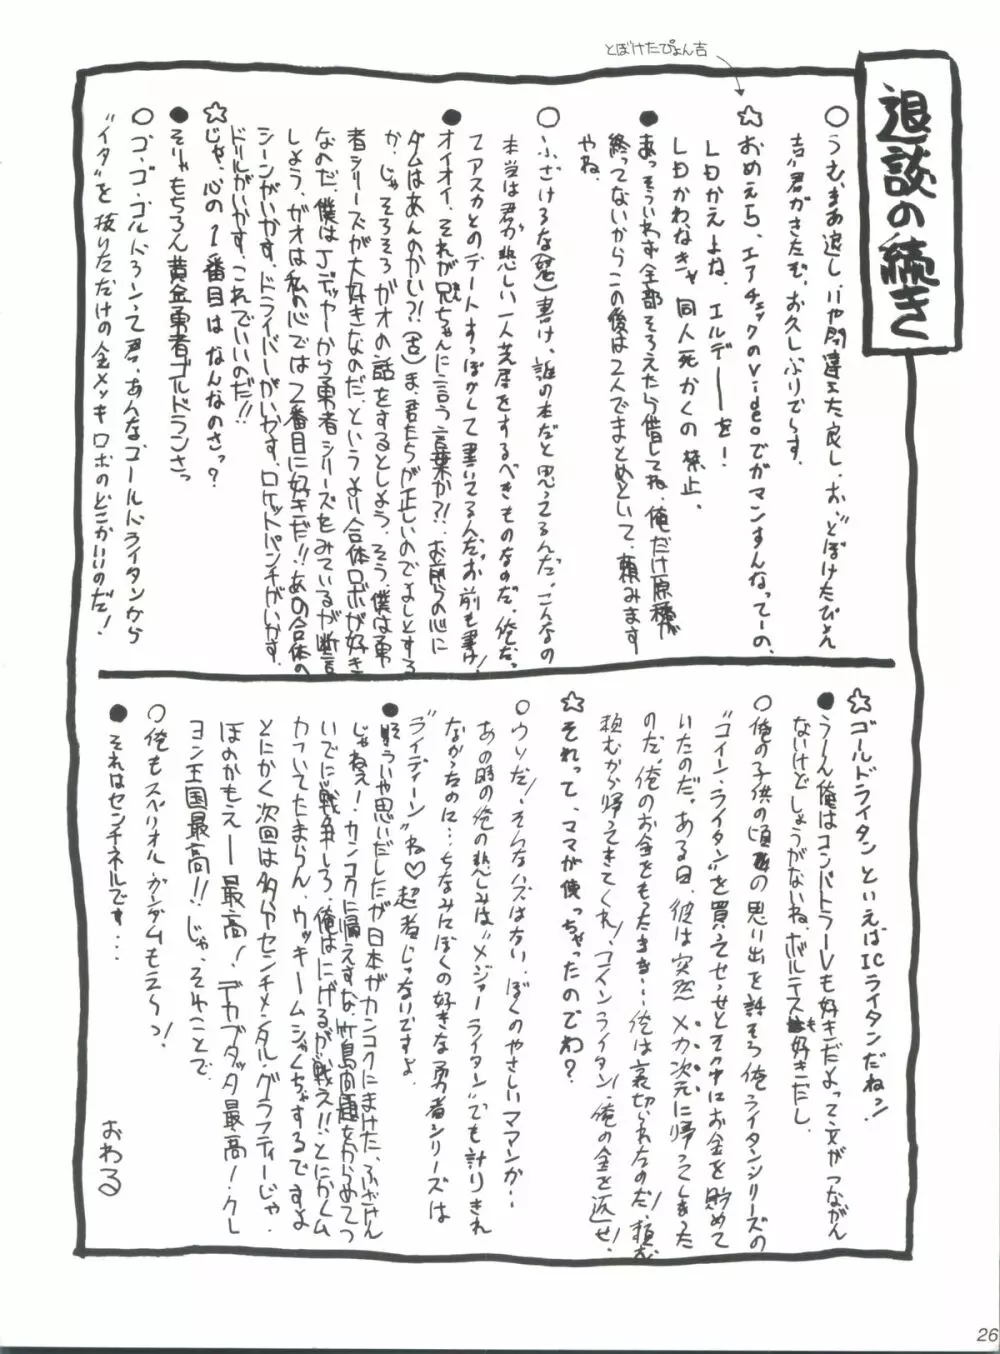 退談の続き
とぼけたぴょん吉
○うむ、まあ退し、いや間違えた、良し、お、どぼけたぴょん
吉君がきたむ。お久しぶりでらす。
☆おめえら、エアチェックのvideoでガマンすんなってーの、
LDかえよね、エルデーーを!
LDかわなきゃ同人死かくの禁止。
●あっそういわず全部そろえたら借してね。俺だけ原稿が
終ってないからこの後は2人でまとめといて、頼みます
やね。
○ふざけるな(怒)書け、誰の本だと思ってるんだ。こんなの
本当は君が悲しい一人芝居をするべきものなのだ。俺だっ
てアスカとのデートすっぽかして書いてるんだ。お前も書け!
●オイオイ、それが兄ちゃんに言う言葉か?!お前らの心に
ダムはあんのかい?!(古)ま、君たちが正しいのでよしとする
か。じゃ、そろそろガオの話をするとしよう。そう、僕は勇
者シリーズが大好きなのだ。というより合体ロボが好き
なのだ。僕はJデッカーから勇者シリーズをみているが断言
しよう、ガオは私の心では2番目に好きだ!!あの合体の
シーンがいかす、ドライバーがいかす、ロケットパンチがいかす、
ドリルがいかす、これでいいのだ!!
☆じゃ、心の1番目はなんなのさっ?
●そりゃもちろん黄金勇者ゴルドランさっ
○ゴ・ゴ・ゴルドランって君、あんな、ゴールドライタンから
“イタ”を抜りただけの金メッキロボのどこかいいのだ!
☆ゴールドライタンといえばICライタンだねっ!
●うーん俺はコンバトラーVも好きだよって文がつながん
ないけどしょうがないね、ボルテスも好きだし
○俺の子供の頃の思い出を話そう俺、ライタンシリーズの
“コイン・ライタン”を買ってせっせとその中にお金を貯めて
いたのだ。ある日、彼は突然メカ次元に帰ってしまった
のだ。俺のお金をもったまま…俺は裏切られたのだ!頼む
頼むから帰ってきてくれ!コインライタン!俺の金を返せ!
☆それって、ママが使っちゃったのでわ?
○ウソだ!そんなハズはない。ぼくのやさしいママンが…
あの時の俺の悲しみは“メジャーライタン”でも計りきれ
なかったのに…ちなみにぼくの好きな勇者シリーズは
“ライディーン”ね♡超者じゃないですよ
●そういや思いだしたが日本がカンコクにまけた、ふざけん
じゃねえ!カンコクに帰えすな、竹島問題をからめてつ
いでに戦争しろ、俺はにげるが戦え!!とにかくム
カついてたまらん、ウッキームシャくちゃするですよ
とにかく次回は多分センチメンタル・グラフティーじゃ、
ほのかもえーー最高!、デカブダッタ最高!・クレ
ヨン王国最高!!じゃ、それことで
○俺もスペリオル・ガンダムもえ〜っ!
●それはセンチネルです…
おわる
26